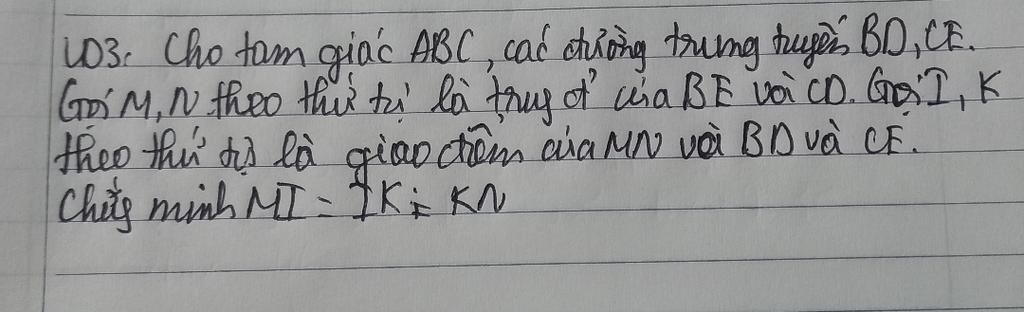 VD3: Cho tam giác ABC, các đường trung tuyến BD, CE.
Gọi M, N theo thứ tự là trung đ' của BE và CD. Gọi I, K
theo thứ tự là giao điểm của MN với BD và CE.
Chứng minh MI = IK = KN